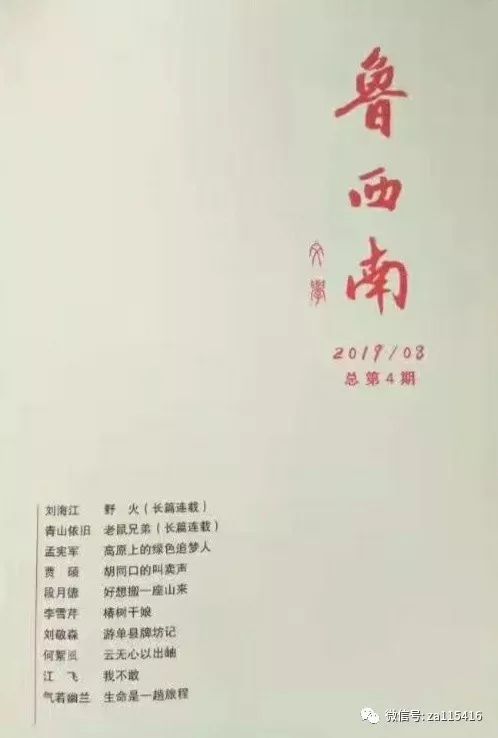 鲁西南
文学
2019/08
总第4期
刘海江 野 火（长篇连载）
青山依旧 老鼠兄弟（长篇连载）
孟宪军 高原上的绿色追梦人
贾 硕 胡同口的叫卖声
段月德 好想搬一座山来
李雪芹 椿树干娘
刘敬森 游单县牌坊记
何絮風 云无心以出岫
江 飞 我不敢
气若幽兰 生命是一趟旅程
微信号: za115416